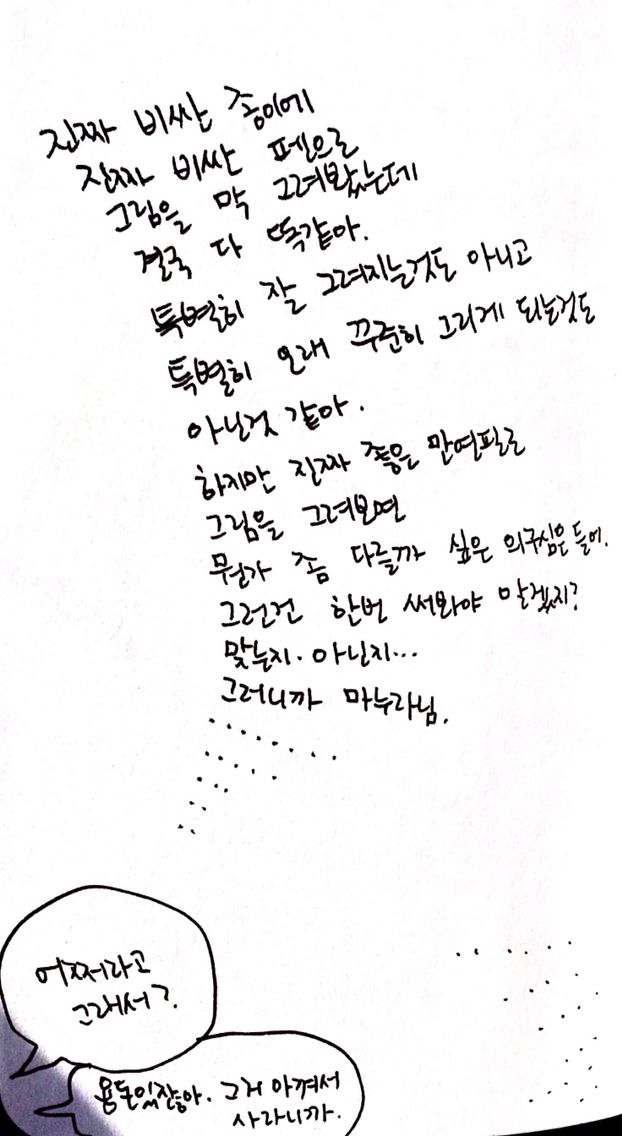 진짜 비싼 종이에
진짜 비싼 펜으로
그림을 막 그려봤는데
결국 다 똑같아.
특별히 잘 그려지는것도 아니고
특별히 오래 꾸준히 그리게 되는것도
아닌것 같아.
하지만 진짜 좋은 만연필로
그림을 그려보면
뭔가 좀 다를까 싶은 의구심은 들어.
그런건 한번 써봐야 알겠지?
맞는지. 아닌지...
그러니까 마누라님.
어쩌라고
그래서?
용돈있잖아. 그거 아껴서
사라니까.